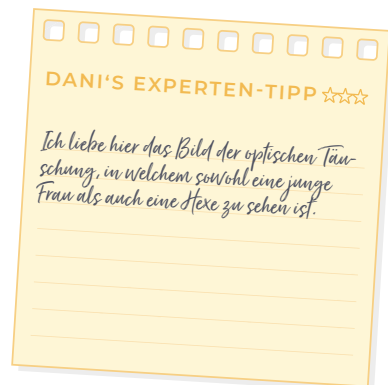 DANI'S EXPERTEN-TIPP
Ich liebe hier das Bild der optischen Täu-
schung, in welchem sowohl eine junge
Frau als auch eine Hexe zu sehen ist.